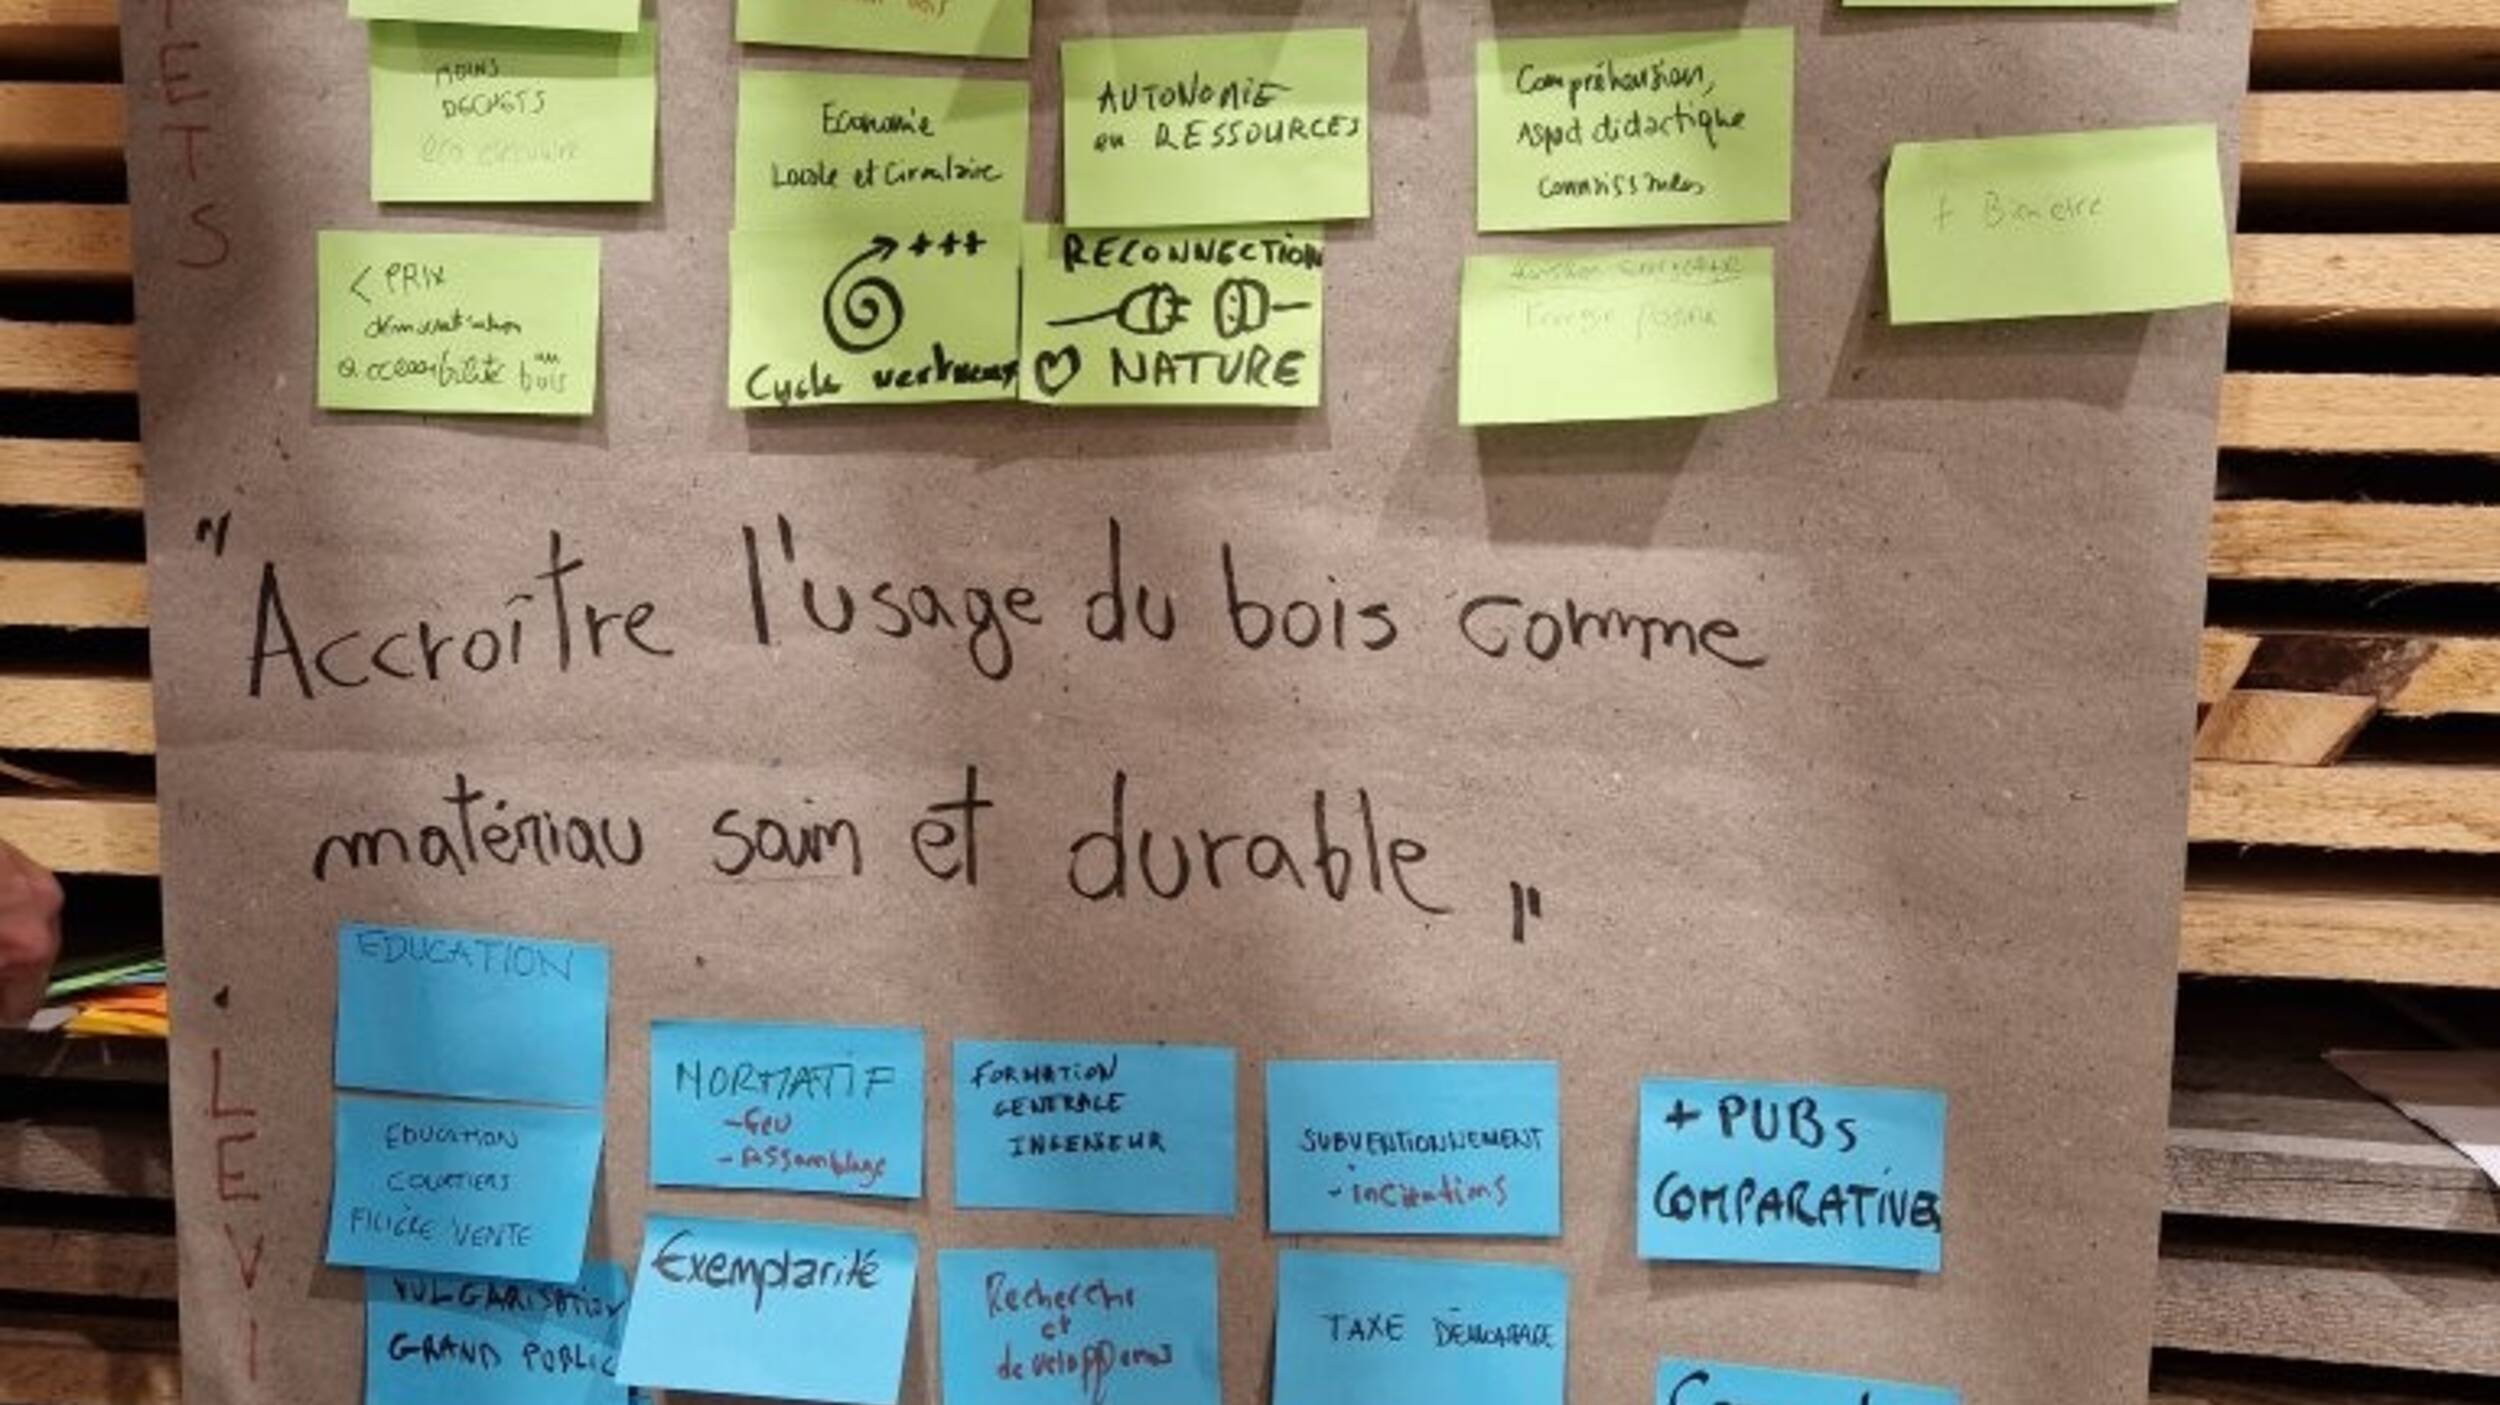 ETS
MOINS
DECHETS
Economie
Locale et Circulaire
AUTONOMIE
en RESSOURCES
Compréhension,
Aspect didactique
connaissances
+ Bien etre
< PRIX
démocratisation
accessibilité au bois
+++
Cycle vertueux
RECONNECTION
NATURE
"Accroître l'usage du bois comme
matériau sain et durable"
LEVI
EDUCATION
EDUCATION
COURTIERS
FILIÈRE VENTE
VULGARISATION
GRAND PUBLIC
NORMATIF
- Feu
- Assemblage
Exemplarité
FORMATION
GENERALE
INGENIEUR
Recherche
et
developpemet
SUBVENTIONNEMENT
- incitations
TAXE
+ PUBS
COMPARATIVES